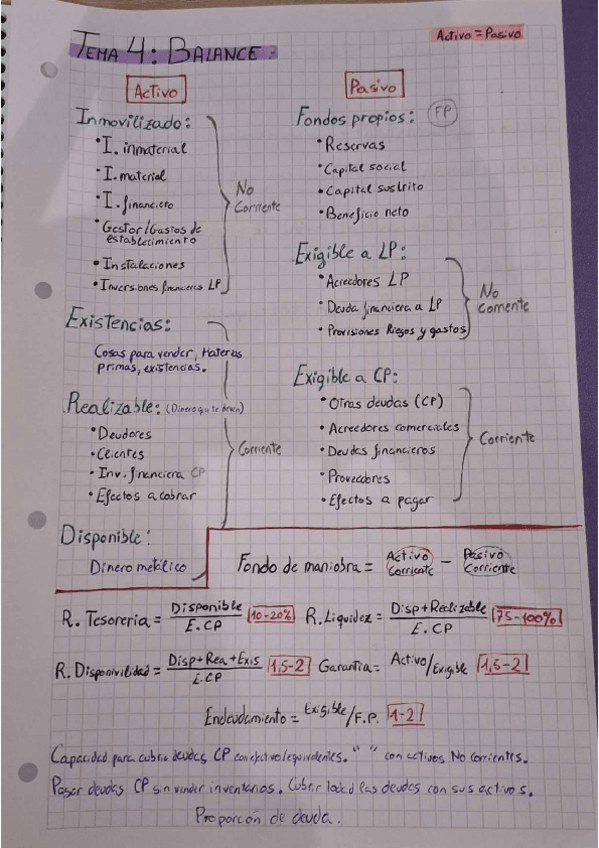 Activo = Pasivo
TEMA 4: BALANCE:
Activo
Inmovilizado:
• I. inmaterial
• I. material
• I. financiero
• Gestor/Gastos de
establecimiento
• Instalaciones
• Inversiones financieros LP
No
Corriente
Existencias:
Cosas para vender, Materias
primas, existencias.
Realizable: (Dinero que te deben)
• Deudores
• Clientes
• Inv. financiera CP
• Efectos a cobrar
Corriente
Disponible:
Dinero metálico
Pasivo
Fondos propios: FP
• Reservas
• Capital social
• Capital suscrito
• Beneficio neto
Exigible a LP:
• Acreedores LP
• Deuda financiera a LP
• Provisiones Riegos y gastos
No
Corriente
Exigible a CP:
• Otras deudas (CP)
• Acreedores comerciales
• Deudas financieros
• Proveedores
• Efectos a pagar
Corriente
Fondo de maniobra = Activo Corriente - Pasivo Corriente
R. Tesoreria = Disponible / E.CP 10-20% R. Liquidez = Disp+Realizable / E.CP 75-100%
R. Disponivilidad = Disp+Rea+Exis / E.CP 1,5-2 Garantia = Activo/Exigible 1,5-2
Endeudamiento = Exigible/F.P. 1-2
Capacidad para cubrir deudas CP con efectivo/equivalentes. " " con activos No corrientes.
Pagar deudas CP sin vender inventarios. Cubrir las deudas con sus activos.
Proporcón de deuda.